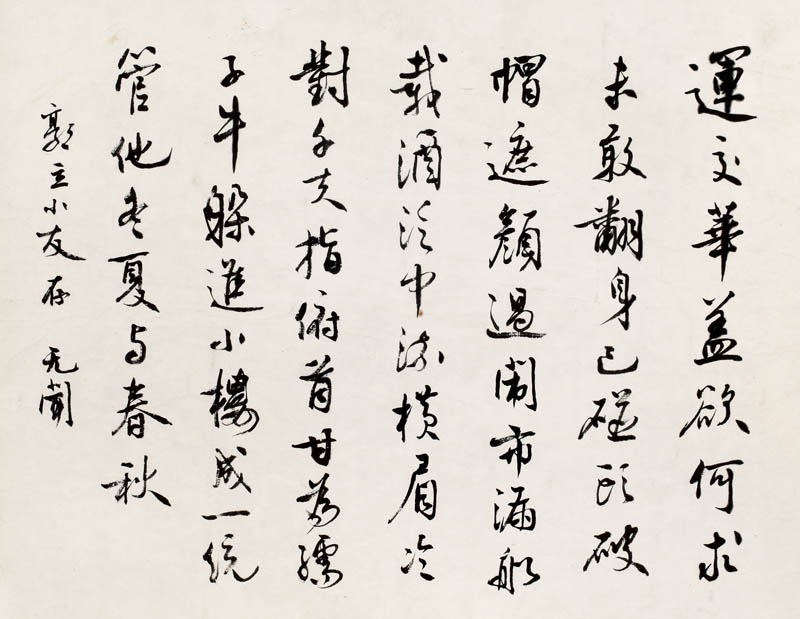 運交華盖欲何求
未敢翻身已碰頭破
帽遮顏過鬧市漏船
載酒泛中流橫眉冷
對千夫指俯首甘為孺
子牛躲進小樓成一統
管他冬夏与春秋
郭立小友存 无聞